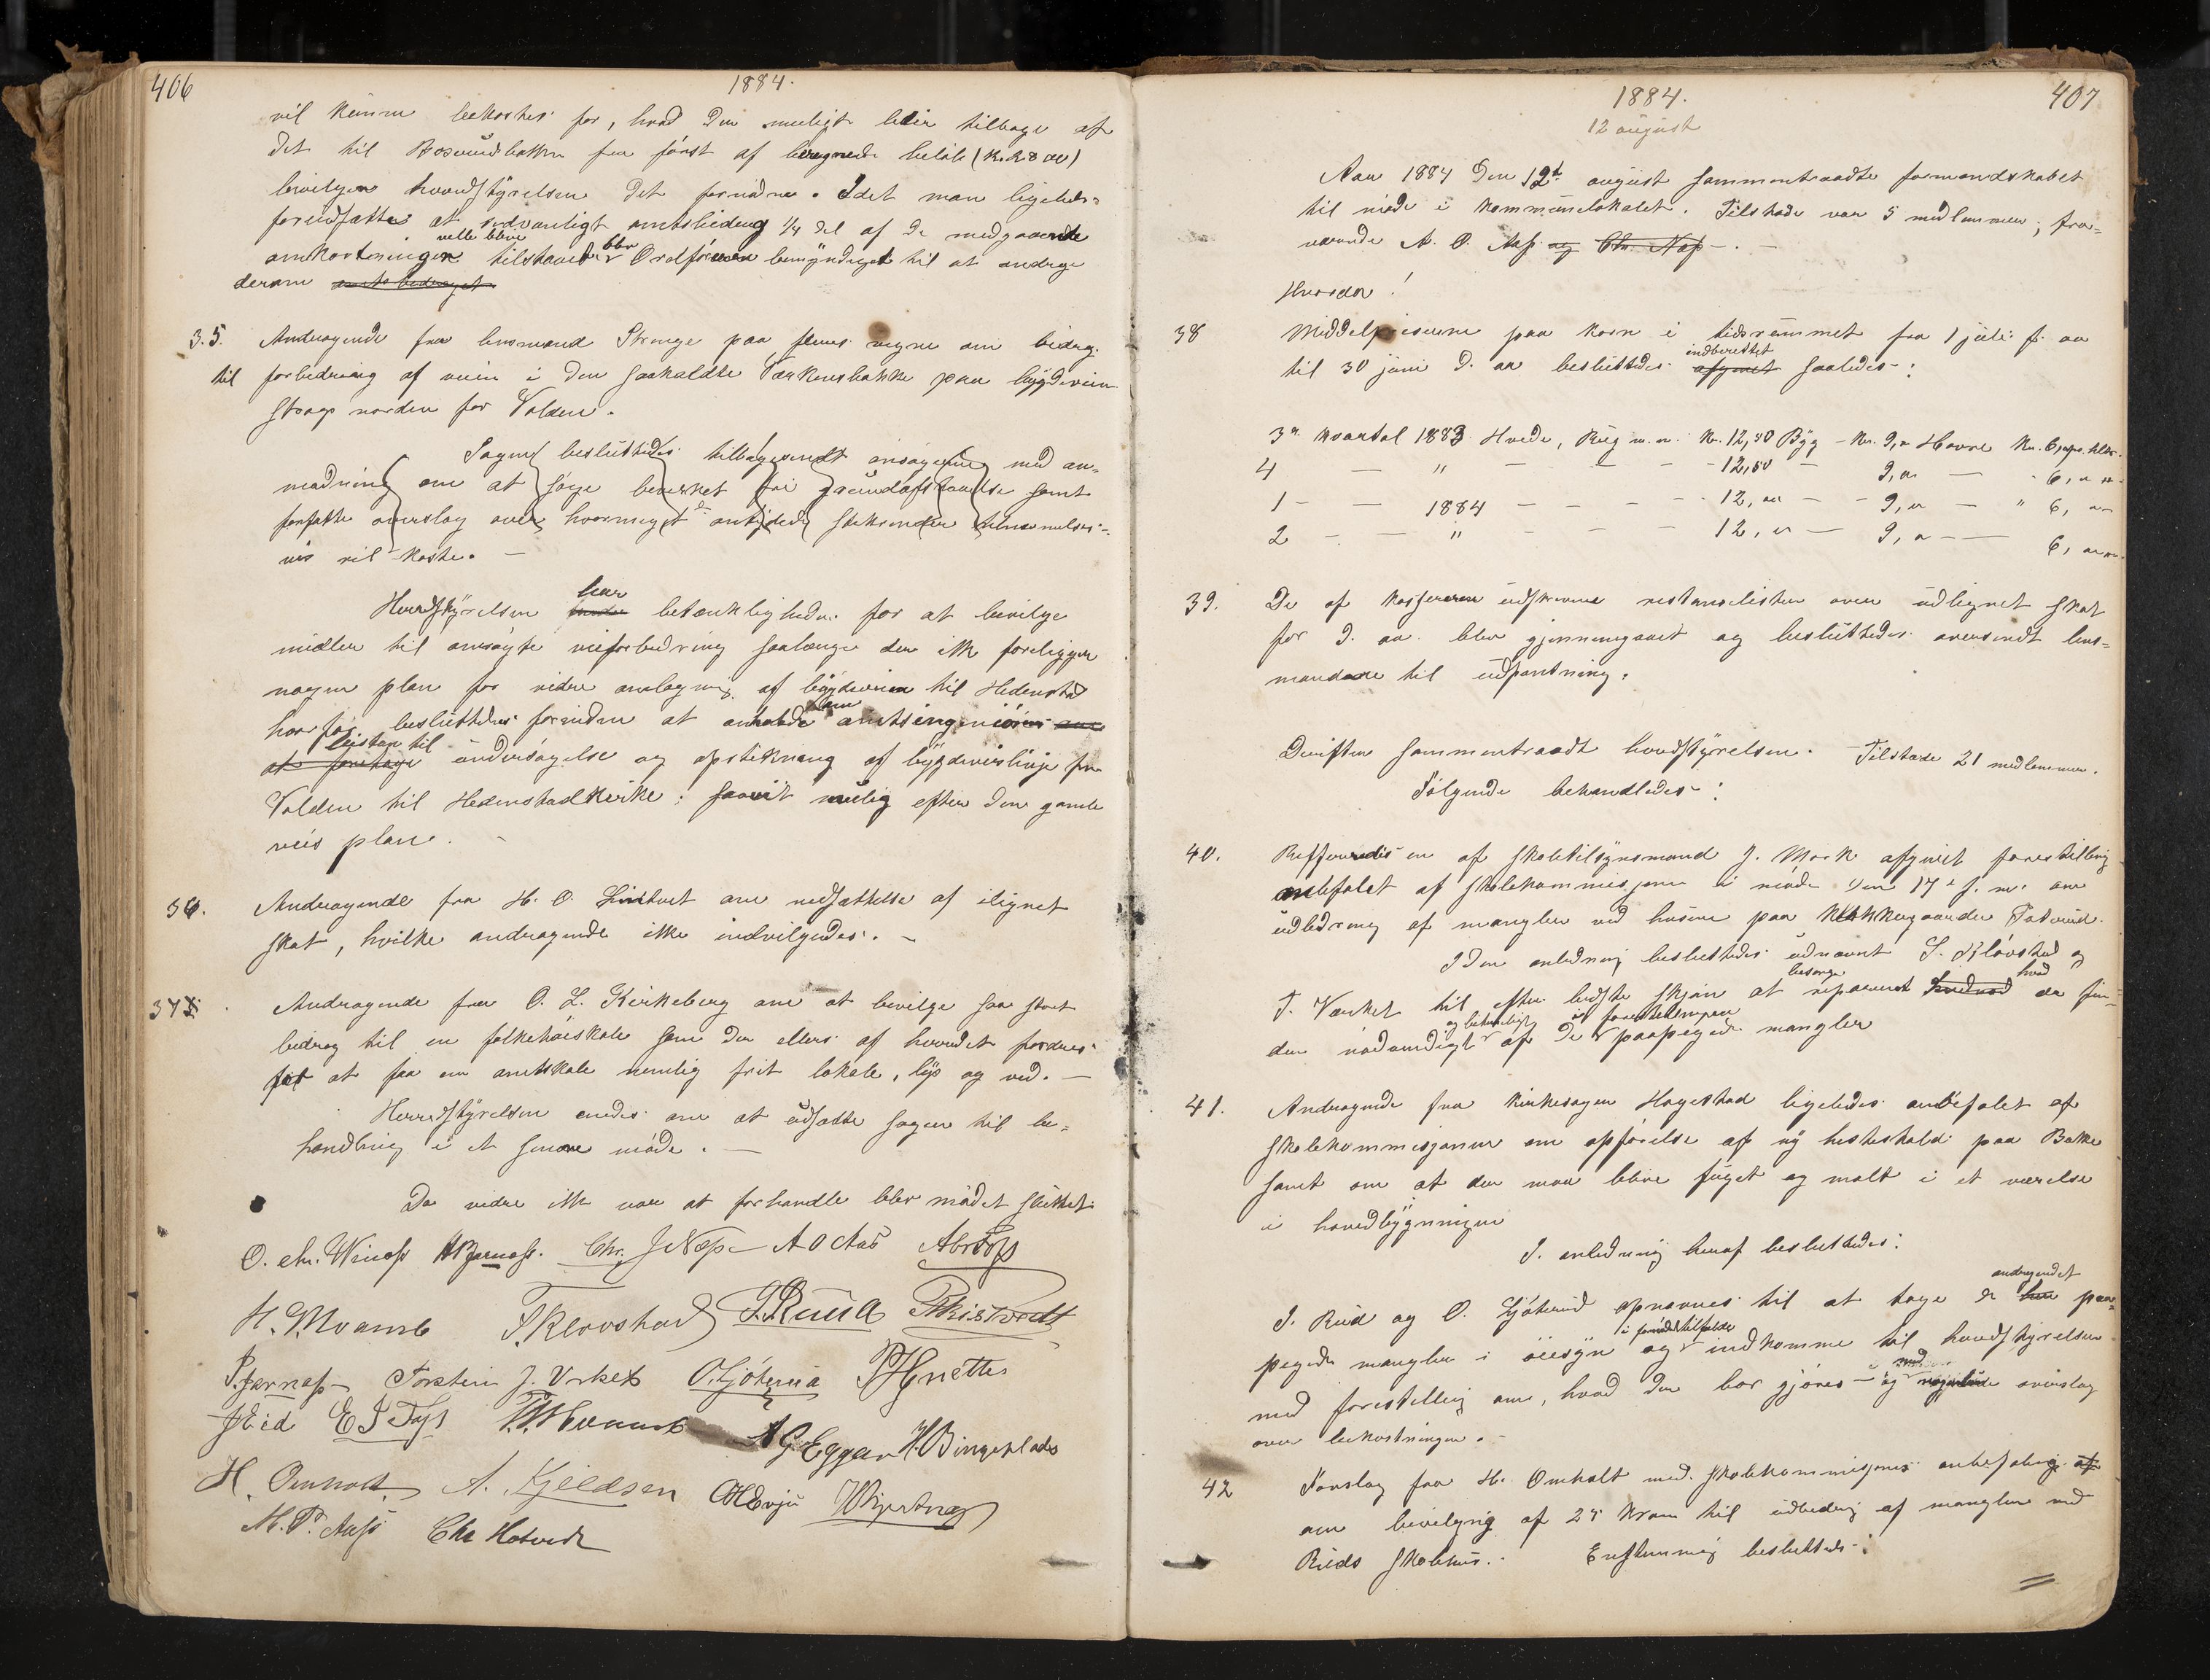 406
1884.
vil kunne bekostes for, hvad der muligt blir tilbage af
det til Bosvudbakken for først af beregnede beløb
bevilger herredstyrelsen det fornødne. Idet man ligeledes
forudsætter at sedvanligt amtsbidrag 1/4 del af de medgaaende
omkostninger ville blive tilstaaet blev Ordføreren bemyndiget til at andrage
derom amtsbidraget
35. Andragende fra lensmand Strange paa fleres vegne om bidrag
til forbedring af veien i den saakaldte bakke paa bygdeveien
strags norden for Volden.
Sagen besluttedes tilbagesendt ansøgerne med an-
modning om at søge bevirket fri grundafstaaelse samt
forfatte overslag over hvormeget de antydede
vis vil koste. –
Herredstyrelsen har betænkligheder for at bevilge
midler til ansøgte veiforbedring saalænge der ikke foreligger
nogen plan for videre omlægning af bygdeveien til Hedenstad
hvorfor besluttedes forinden at anholde amtsingeniøren om
at foretage bistan til undersøgelse og opstikning af bygdeveislinje fra
Volden til Hedenstad kirke; saavit mulig efter den gamle
veis plan. –
36. Andragende fra H. O. Lintvet om nedsættelse af ilignet
skat, hvilke andragende ikke indvilgedes. –
37. Andragende fra O. L. Kirkeberg om at bevilge saa stort
bidrag til en folkehøiskole som der ellers af herredet fordres
for at faa en amtskole nemlig frit lokale, lys og ved. –
Herredstyrelsen enedes om at udsætte sagen til be-
handling i et senere møde. –
Da videre ikke var at forhandle blev mødet sluttet.
Chr. J Næss A O Aas
H. Moamb T. Kløvstad J. Ruud
P. Jarnæss Torstein J. Verket O. Gjøterud
J Eid E J Foss A G. Eggar H. Bingeplads
H. Omholt A. Kjeldsen
M. P. Aass Chr Hotvedt
407
1884.
12 august
Aar 1884 den 12te august sammentraadte formandskabet
til møde i kommunelokalet. Tilstede var 5 medlemmer; fra-
værende A. O. Aas og Chr. Næss –. –
Hvorda!
38 Middelpriserne paa korn i tidsrummet fra 1 juli f. aa
til 30 juni d. aa besluttedes indberettet afgivet saaledes:
3die kvartal 1883 Hvede, Rug m. m. Kr. 12,50 Byg – Kr. 9,00 Havre Kr. 6,00 pr. hltr.
4 — " — — — 12,50 — 9,00 — 6,00
1 — — 1884 — — — 12,00 — 9,00 — " 6,00
2 — — " — — 12,00 — 9,00 — 6,00
39. De af kassereren udskrevne restanselister over udlignet skat
for d. aa. blev gjennemgaaet og besluttedes oversendt lens-
mandene til udpantning.
Derefter sammentraadt herredstyrelsen. – Tilstede 21 medlemmer.
Følgende behandledes:
40. Refferertes en af skoletilsynsmand J. Mørk afgivet forestilling
anbefalet af skolekommisjonen i møde den 17de f. m. om
udbedring af mangler ved husene paa kirkegaarden Foterud.
I den anledning besluttedes udnævnt T. Kløvstad og
T. Værket til efter bedste skjøn at besørge repareret hvad de fin-
der nødvendigt og beleiligt af de i forestillingen paapegede mangler
41. Andragende fra kirkesanger Hagestad ligeledes anbefalet af
skolekommisjonen om opførelse af ny hestestald paa Bakke
samt om at der maa blive fuget og malt i et værelse
i hovedbygningen
I anledning heraf besluttedes:
J. Rud og O. Gjøterud opnævnes til at tage de andragendet paa-
pegede mangler i øiesyn og i fornødent tilfælde indkomme til herredstyrelsen
med forestilling om, hvad der bør gjøres – og med overslag
over bekostningen. –
42 Forslag fra H. Omholt med skolekommisjonens anbefaling af
om bevilgning af 25 kroner til udbedring af mangler ved
Ruds skolehus. – Enstemmig besluttedes: